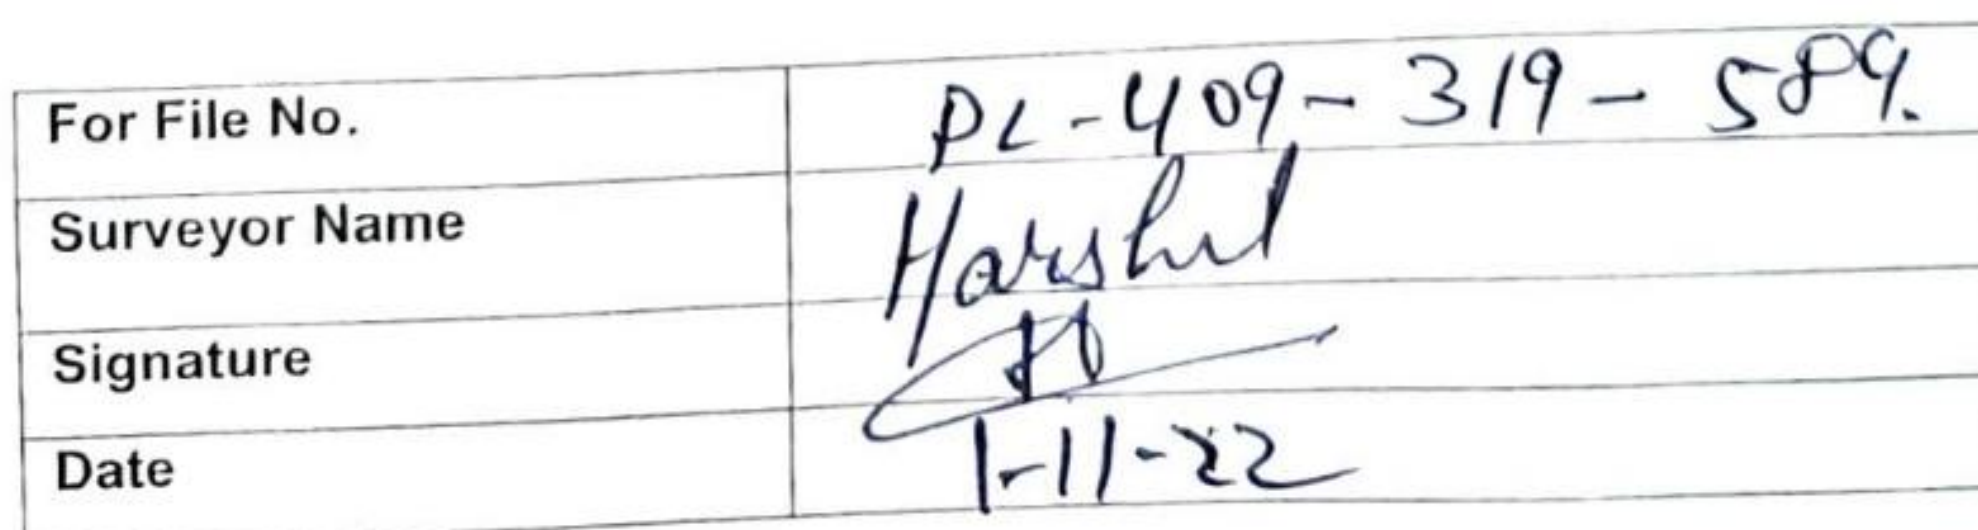 For File No. PL-409-319-589.
Surveyor Name Harshul
Signature
Date 1-11-22